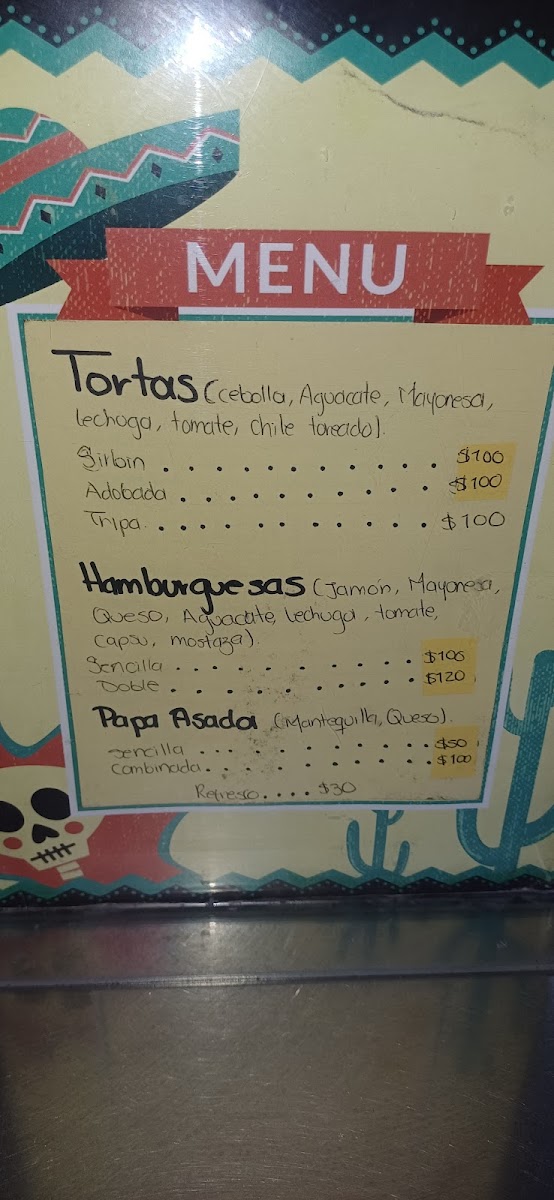 MENU
Tortas (Cebolla, Aguacate, Mayonesa,
lechuga, tomate, chile toreado).
Sirlon . . . . . . . . . . . $100
Adobada . . . . . . . . . . . $100
Tripa . . . . . . . . . . . $100
Hamburguesas (Jamón, Mayonesa,
Queso, Aguacate, lechuga, tomate,
capsu, mostaza).
Sencilla . . . . . . . . . $100
Doble . . . . . . . . . $120
Papa Asada (Mantequilla, Queso).
Sencilla . . . . . . . . . $50
Combinada . . . . . . . . . $100
Refresco . . . . $30